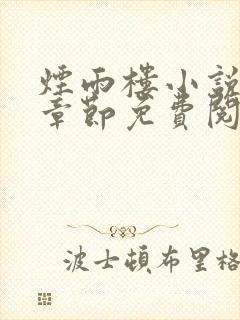 煙雨樓小說
章節免費閱
波士頓布里格